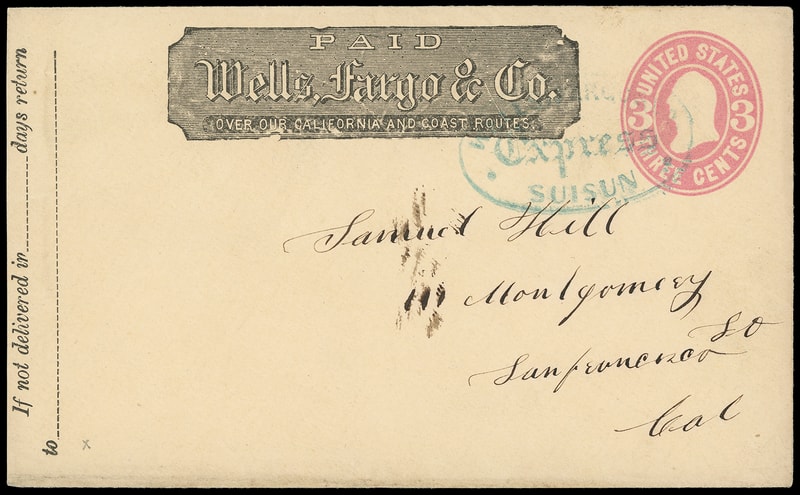 PAID
Wells, Fargo & Co.
OVER OUR CALIFORNIA AND COAST ROUTES.
UNITED STATES
3 3
THREE CENTS
Express
SUISUN
Samuel Hill
111 Montgomery
St
Sanfrancisco
Cal
If not delivered in days return
to
x